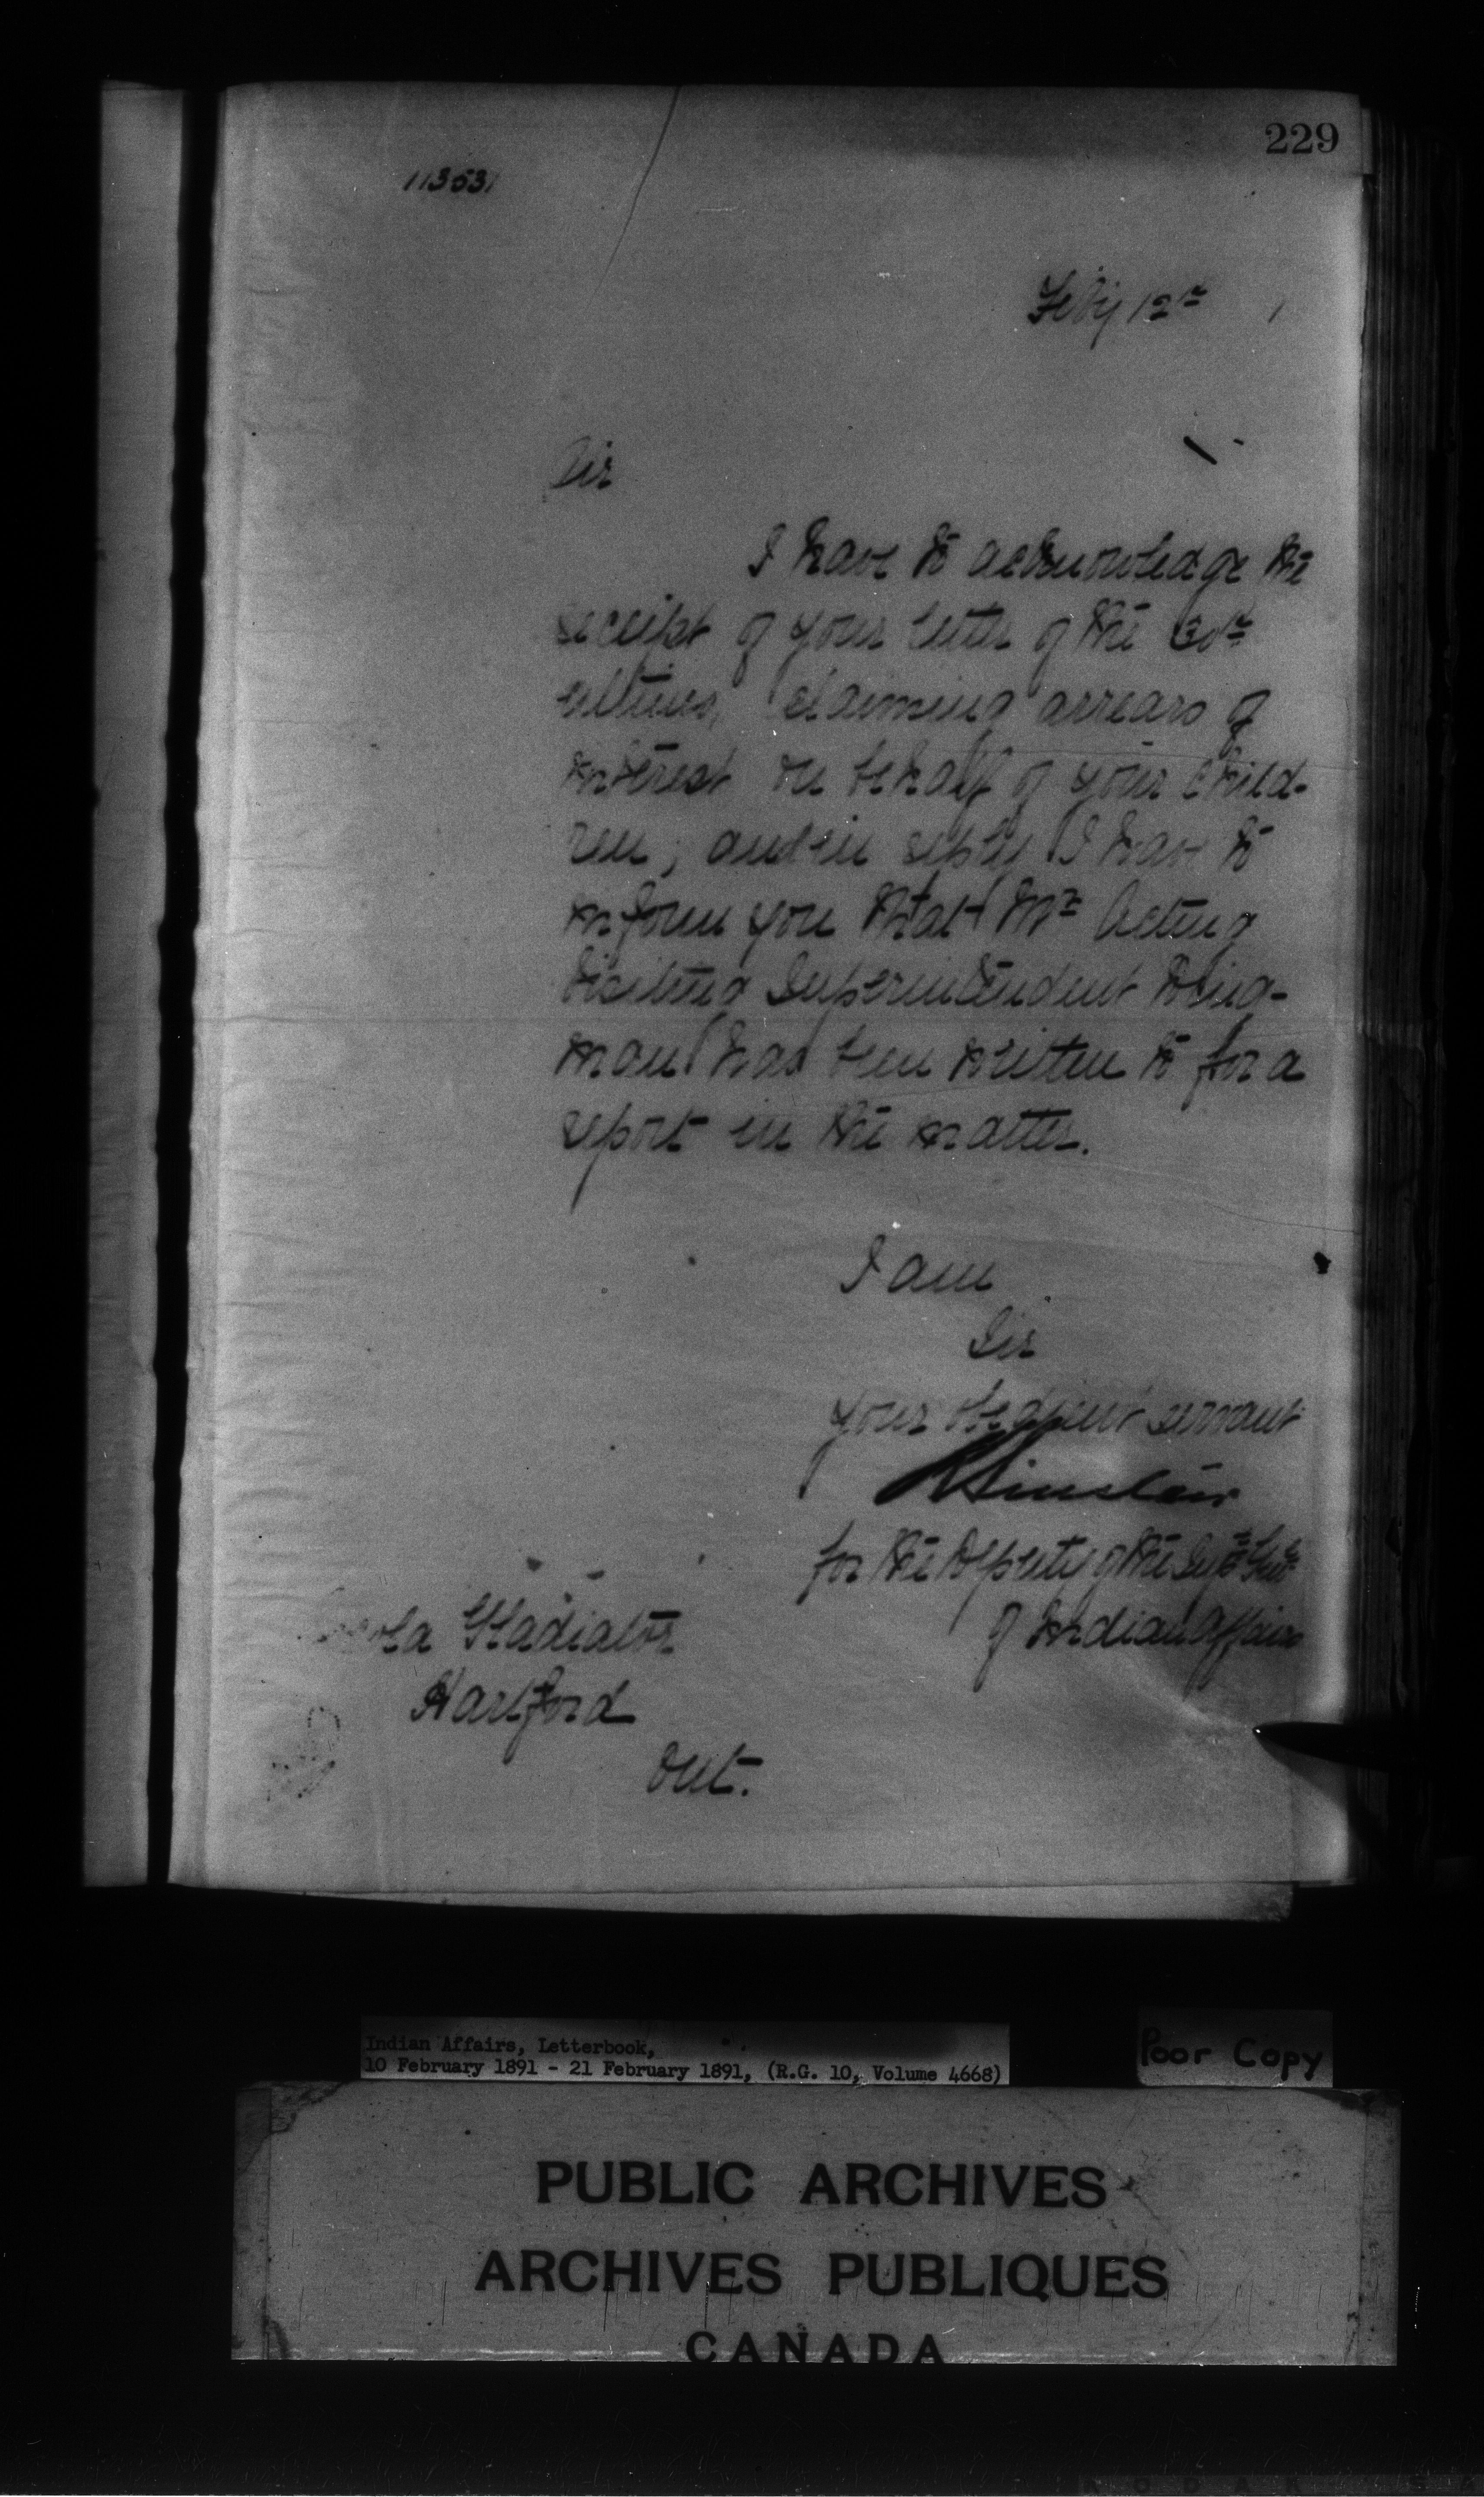 229
113531
Feby 12th 1
Sir
I have to acknowledge the
receipt of your letter of the 30th
ultimo, claiming arrears of
interest on behalf of your child-
ren; and in reply I have to
inform you that Mr Acting
Visiting Superintendent Ding-
man has been written to for a
report in the matter.
I am
Sir
Your obedient servant
R Sinclair
for the Deputy of the Supt Genl
of Indian Affairs
Gladiator
Hartford
Ont.
Indian Affairs, Letterbook,
10 February 1891 - 21 February 1891, (R.G. 10, Volume 4668)
Poor Copy
PUBLIC ARCHIVES
ARCHIVES PUBLIQUES
CANADA